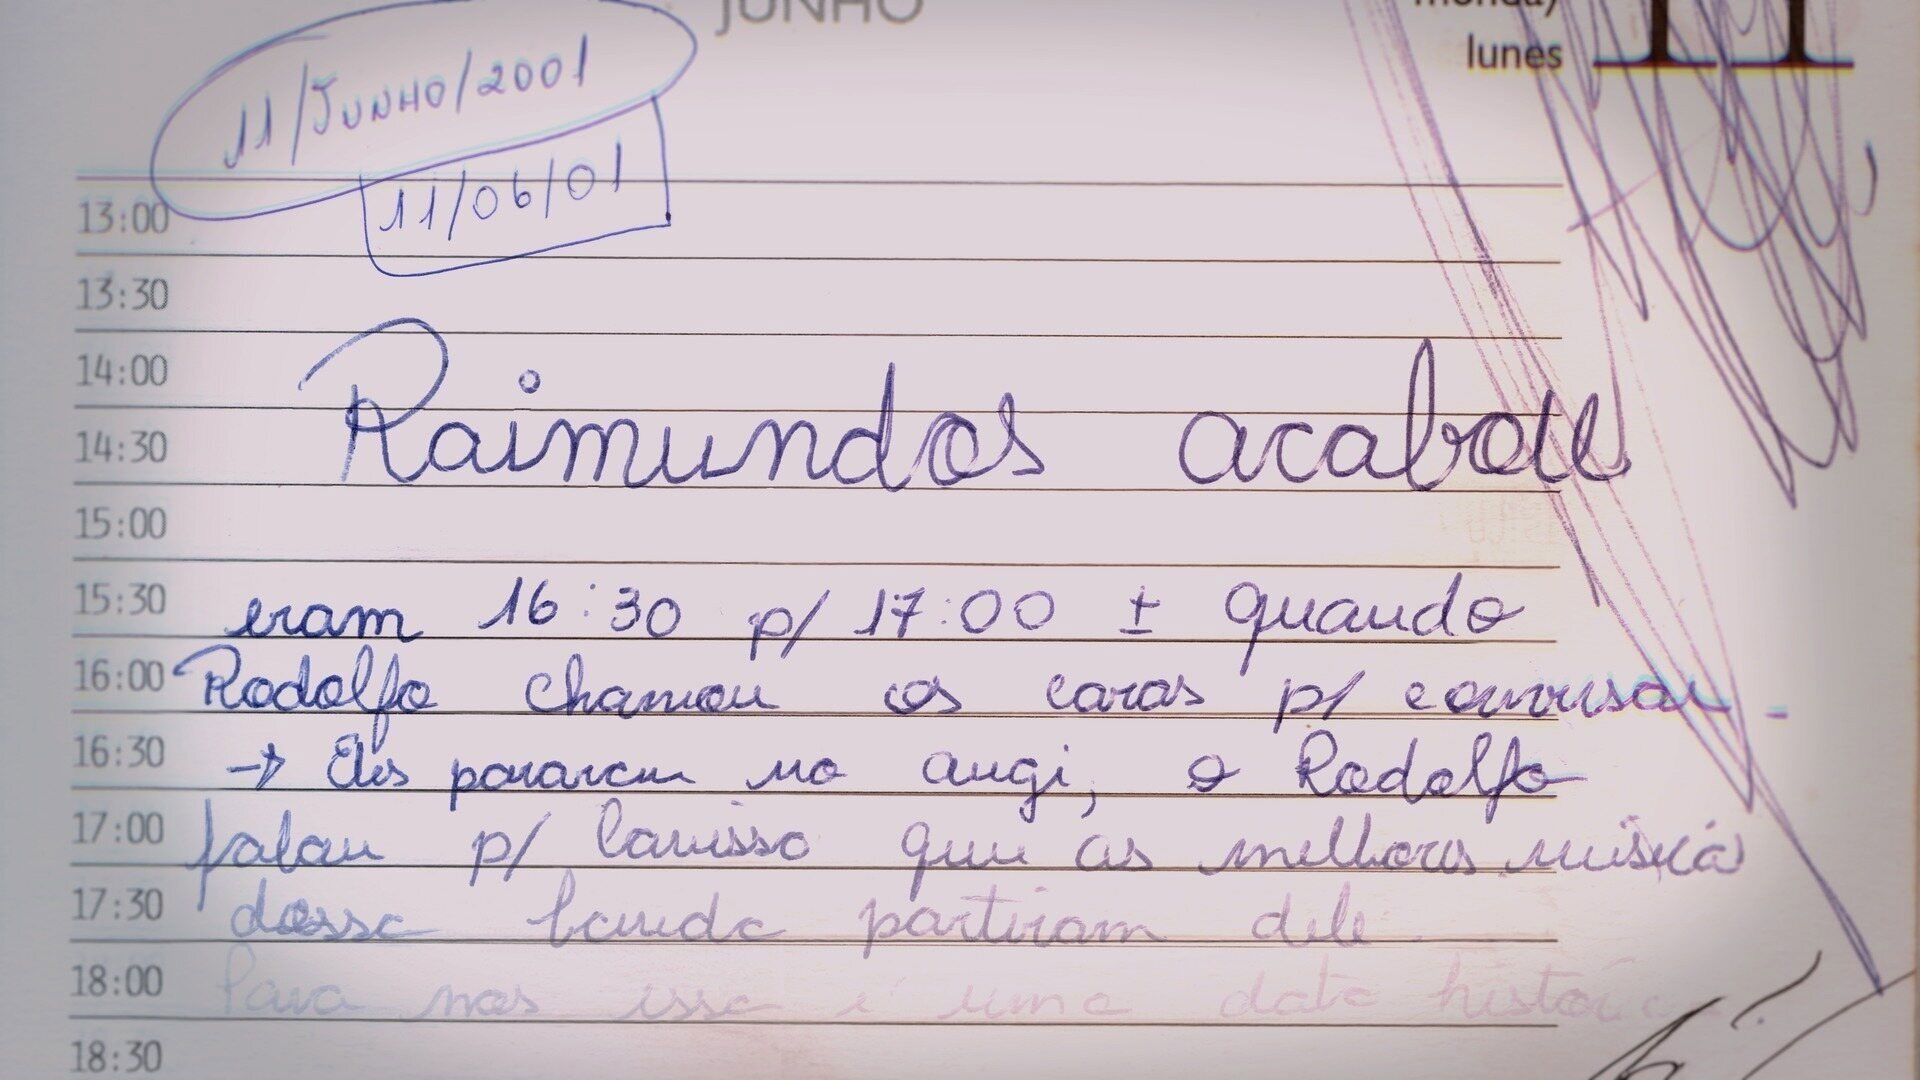 JUNHO
monday
lunes
11
11/JUNHO/2001
11/06/01
13:00
13:30
14:00
14:30 Raimundos acabou
15:00
15:30 eram 16:30 p/ 17:00 ± quando
16:00 Rodolfo chamou os caras p/ conversar -
16:30 → Eles pararam no augi, o Rodolfo
17:00 falou p/ que as melhores música
17:30 dessa banda partiram dele
18:00 Para nos essa é uma data
18:30